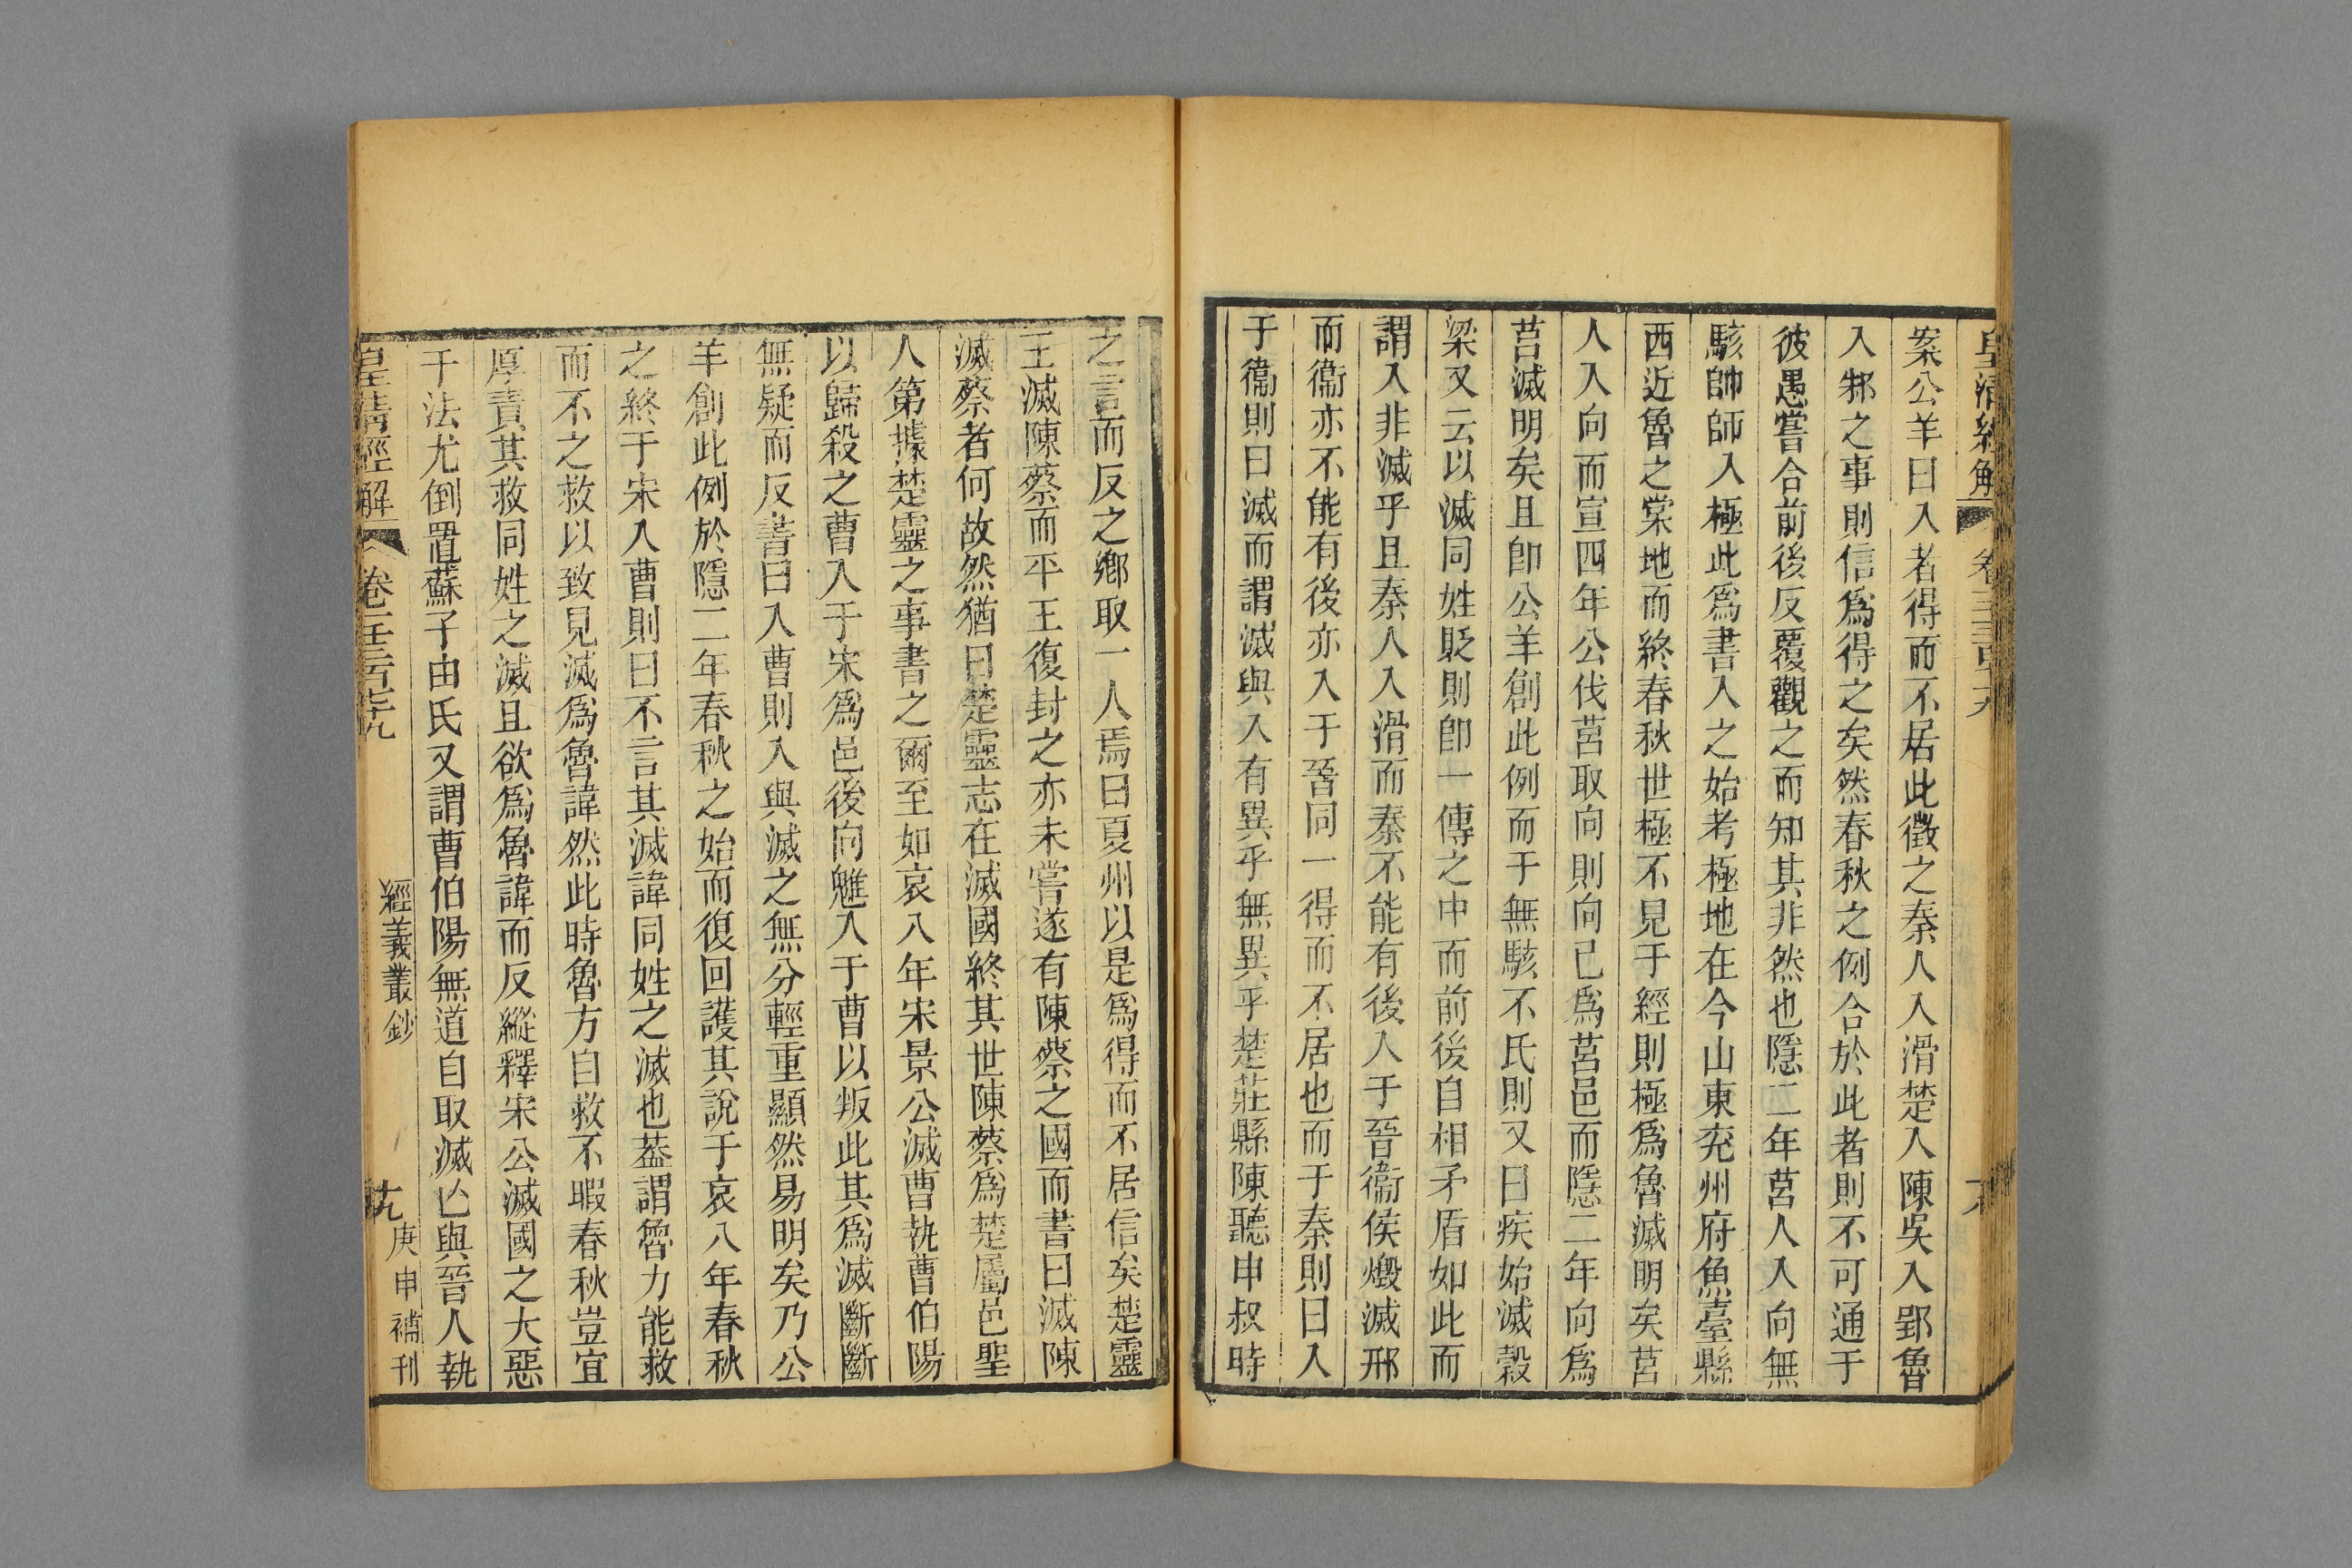 皇清經解
案公羊曰入者得而不居此徵之秦人入滑楚入陳吳入郢魯
入邾之事則信爲得之矣然春秋之例合於此者則不可通于
彼愚嘗合前後反覆觀之而知其非然也隱二年莒人入向無
駭帥師入極此爲書入之始考極地在今山東兖州府魚臺縣
西近魯之棠地而終春秋世極不見于經則極爲魯滅明矣莒
人入向而宣四年公伐莒取向則向已爲莒邑而隱二年向爲
莒滅明矣且卽公羊創此例而于無駭不氏則又曰疾始滅穀
梁又云以滅同姓貶則卽一傳之中而前後自相矛盾如此而
謂入非滅乎且秦人入滑而秦不能有後入于晉衞侯燬滅邢
而衞亦不能有後亦入于晉同一得而不居也而于秦則曰入
于衞則曰滅而謂滅與入有異乎無異乎楚莊縣陳聽申叔時
之言而反之鄉取一人焉曰夏州以是爲得而不居信矣楚靈
王滅陳蔡而平王復封之亦未嘗遂有陳蔡之國而書曰滅陳
滅蔡者何故然猶曰楚靈志在滅國終其世陳蔡爲楚屬邑聖
人第據楚靈之事書之爾至如哀八年宋景公滅曹執曹伯陽
以歸殺之曹入于宋爲邑後向魋入于曹以叛此其爲滅斷斷
無疑而反書曰入曹則入與滅之無分輕重顯然易明矣乃公
羊創此例於隱二年春秋之始而復回護其說于哀八年春秋
之終于宋入曹則曰不言其滅諱同姓之滅也葢謂魯力能救
而不之救以致見滅爲魯諱然此時魯方自救不暇春秋豈宜
厚責其救同姓之滅且欲爲魯諱而反縱釋宋公滅國之大惡
于法尤倒置蘇子由氏又謂曹伯陽無道自取滅亾與晉人執
皇清經解 卷一千三百七十九 經義叢鈔 十九 庚申補刊